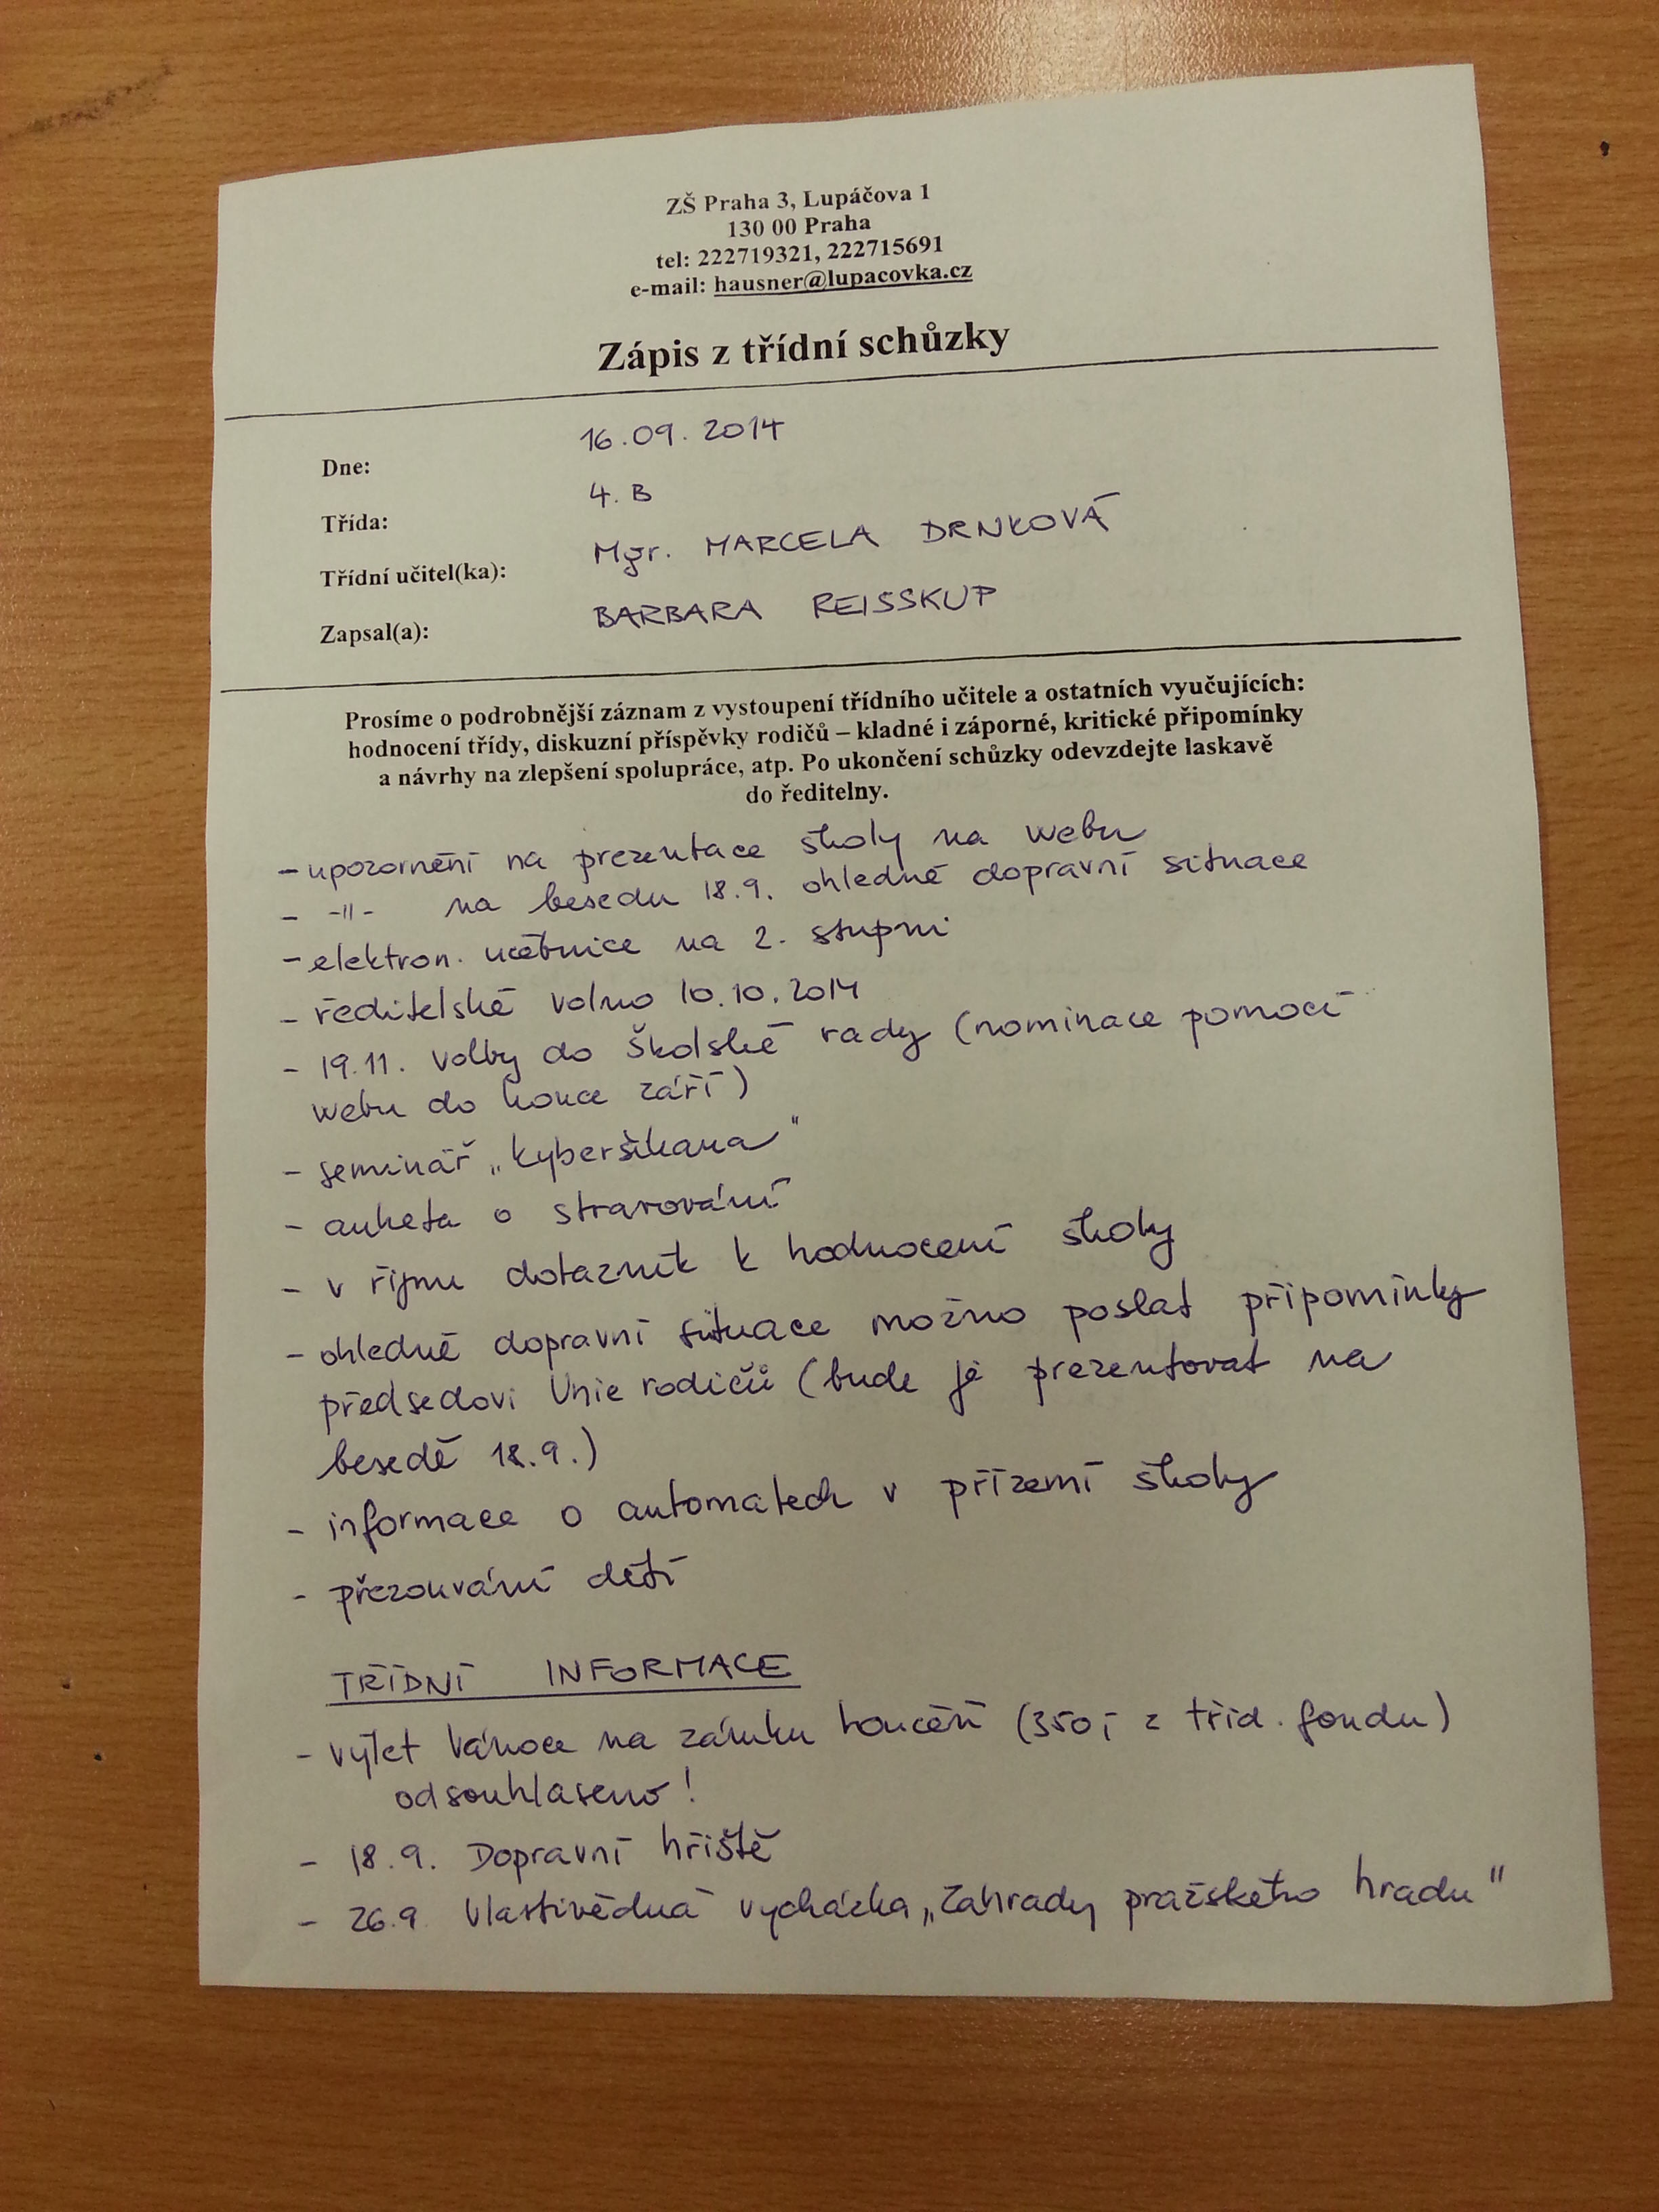 ZŠ Praha 3, Lupáčova 1
130 00 Praha
tel: 222719321, 222715691
e-mail: hausner@lupacovka.cz
Zápis z třídní schůzky
Dne: 16.09.2014
Třída: 4.B
Třídní učitel(ka): Mgr. MARCELA DRNKOVÁ
Zapsal(a): BARBARA REISSKUP
Prosíme o podrobnější záznam z vystoupení třídního učitele a ostatních vyučujících:
hodnocení třídy, diskuzní příspěvky rodičů – kladné i záporné, kritické připomínky
a návrhy na zlepšení spolupráce, atp. Po ukončení schůzky odevzdejte laskavě
do ředitelny.
- upozornění na prezentace školy na webu
- -11- na besedu 18.9. ohledně dopravní situace
- elektron. učebnice na 2. stupni
- ředitelské volno 10.10.2014
- 19.11. volby do školské rady (nominace pomocí
webu do konce září)
- seminář „kyberšikana"
- anketa o stravování
- v říjnu dotazník k hodnocení školy
- ohledně dopravní situace možno poslat připomínky
předsedovi Unie rodičů (bude je prezentovat na
besedě 18.9.)
- informace o automatech v přízemí školy
- přezouvání dětí
TŘÍDNÍ INFORMACE
- výlet Vánoce na zámku Loučeň (350,- z tříd. fondu)
odsouhlaseno!
- 18.9. Dopravní hřiště
- 26.9. Vlastivědná vycházka „Zahrady pražského hradu"